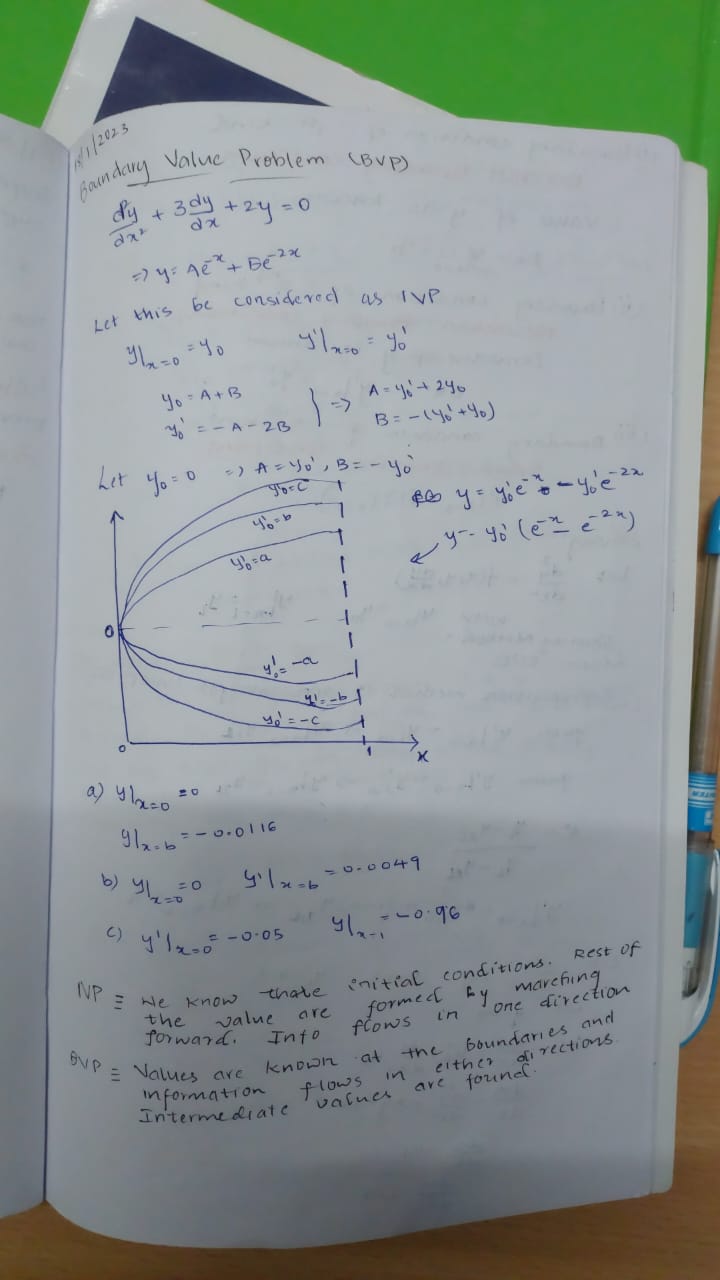 18/1/2023
Boundary Value Problem (BVP)
dy/dx² + 3dy/dx + 2y = 0
=> y = Ae^-x + Be^-2x
Let this be considered as IVP
y|x=0 = y0 y'|x=0 = y0'
y0 = A + B
y0' = -A - 2B
} => A = y0' + 2y0
B = -(y0' + y0)
Let y0 = 0 => A = y0', B = -y0'
y = y0'e^-x - y0'e^-2x
y = y0' (e^-x - e^-2x)
y0'=c
y0'=b
y0'=a
0
y0'=-a
y0'=-b
y0'=-c
0
1
x
a) y|x=0 = 0
y|x=b = -0.0116
b) y|x=0 = 0 y'|x=b = 0.0049
c) y'|x=0 = -0.05 y|x=1 = -0.96
IVP ≡ We know thate initial conditions. Rest of
the value are formed by marching
forward. Info flows in one direction
BVP ≡ Values are known at the boundaries and
information flows in either directions.
Intermediate values are found.